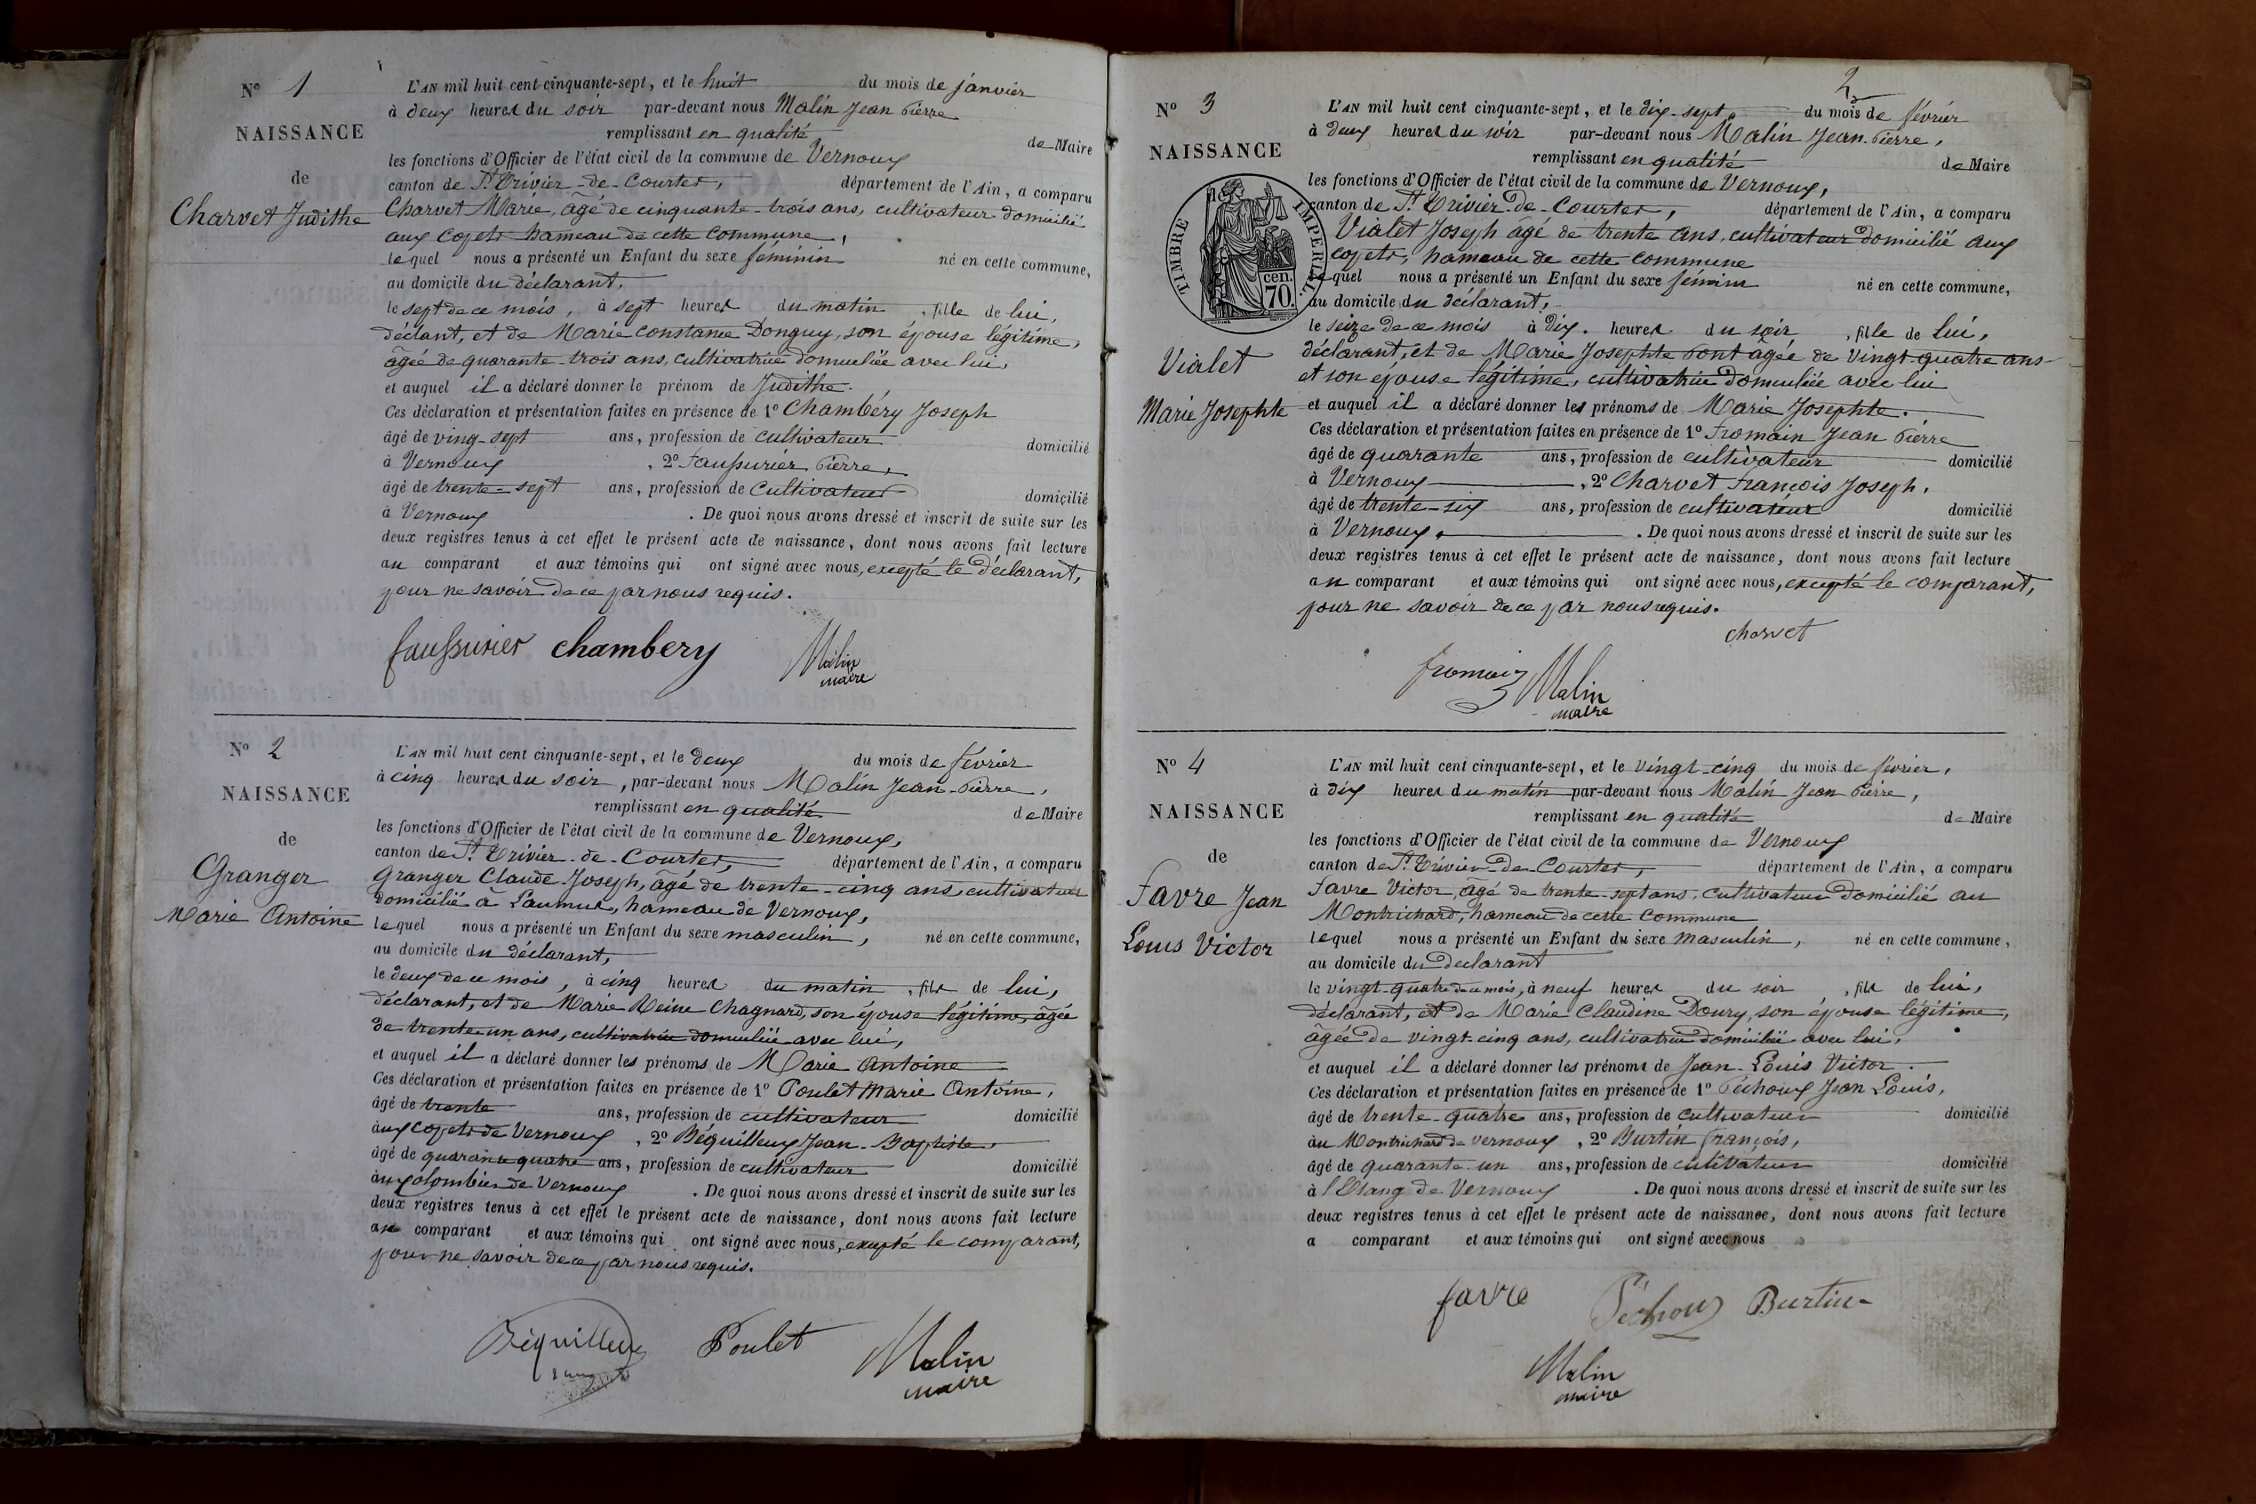 N° 1
NAISSANCE
de
Charvet Judithe
L'AN mil huit cent cinquante-sept, et le huit du mois de janvier
à deux heures du soir par-devant nous Malin Jean Pierre
remplissant en qualité de Maire
les fonctions d'Officier de l'état civil de la commune de Vernoux
canton de St Trivier-de-Courtes, département de l'Ain, a comparu
Charvet Marie, âgé de cinquante-trois ans, cultivateur domicilié
aux Cojets hameau de cette commune,
lequel nous a présenté un Enfant du sexe féminin né en cette commune,
au domicile du déclarant,
le sept de ce mois, à sept heures du matin, fille de lui,
déclant, et de Marie Constance Donguy, son épouse légitime,
âgée de quarante-trois ans, cultivatrice domiciliée avec lui,
et auquel il a déclaré donner le prénom de Judithe.
Ces déclaration et présentation faites en présence de 1° Chambéry Joseph
âgé de ving-sept ans, profession de cultivateur domicilié
à Vernoux, 2° Faussurier Pierre,
âgé de trente-sept ans, profession de cultivateur domicilié
à Vernoux. De quoi nous avons dressé et inscrit de suite sur les
deux registres tenus à cet effet le présent acte de naissance, dont nous avons fait lecture
au comparant et aux témoins qui ont signé avec nous, excepté le déclarant,
pour ne savoir de ce par nous requis.
faussurier chambery Malin
maire
N° 2
NAISSANCE
de
Granger
Marie Antoine
L'AN mil huit cent cinquante-sept, et le deux du mois de février
à cinq heures du soir, par-devant nous Malin Jean-Pierre,
remplissant en qualité de Maire
les fonctions d'Officier de l'état civil de la commune de Vernoux,
canton de St Trivier-de-Courtes, département de l'Ain, a comparu
Granger Claude Joseph, âgé de trente-cinq ans, cultivateur
domicilié à hameau de Vernoux,
lequel nous a présenté un Enfant du sexe masculin, né en cette commune,
au domicile du déclarant,
le deux de ce mois, à cinq heures du matin, fils de lui,
déclarant, et de Marie Reine Chagnard, son épouse légitime, âgée
de trente un ans, cultivatrice domiciliée avec lui,
et auquel il a déclaré donner les prénoms de Marie Antoine
Ces déclaration et présentation faites en présence de 1° Poulet Marie Antoine,
âgé de trente ans, profession de cultivateur domicilié
aux Cojets de Vernoux, 2° Béquilleux Jean-Baptiste,
âgé de quarante quatre ans, profession de cultivateur domicilié
au Colombier de Vernoux. De quoi nous avons dressé et inscrit de suite sur les
deux registres tenus à cet effet le présent acte de naissance, dont nous avons fait lecture
au comparant et aux témoins qui ont signé avec nous, excepté le comparant,
pour ne savoir de ce par nous requis.
Béquilleux Poulet Malin
maire
2
N° 3
NAISSANCE
TIMBRE IMPERIAL
70 cen.
Vialet
Marie Josephte
L'AN mil huit cent cinquante-sept, et le dix-sept du mois de février
à deux heures du soir par-devant nous Malin Jean-Pierre,
remplissant en qualité de Maire
les fonctions d'Officier de l'état civil de la commune de Vernoux,
canton de St Trivier-de-Courtes, département de l'Ain, a comparu
Vialet Joseph âgé de trente ans, cultivateur domicilié aux
cojets, hameau de cette commune
lequel nous a présenté un Enfant du sexe féminin né en cette commune,
au domicile du déclarant,
le seize de ce mois à dix heures du soir, fille de lui,
déclarant, et de Marie Josephte Pont âgée de vingt-quatre ans
et son épouse légitime, cultivatrice domiciliée avec lui
et auquel il a déclaré donner les prénoms de Marie Josephte.
Ces déclaration et présentation faites en présence de 1° Fromain Jean Pierre
âgé de quarante ans, profession de cultivateur domicilié
à Vernoux, 2° Charvet François Joseph,
âgé de trente-six ans, profession de cultivateur domicilié
à Vernoux. De quoi nous avons dressé et inscrit de suite sur les
deux registres tenus à cet effet le présent acte de naissance, dont nous avons fait lecture
au comparant et aux témoins qui ont signé avec nous, excepté le comparant,
pour ne savoir de ce par nous requis.
charvet
fromain Malin
maire
N° 4
NAISSANCE
de
Favre Jean
Louis Victor
L'AN mil huit cent cinquante-sept, et le vingt-cinq du mois de février,
à dix heures du matin par-devant nous Malin Jean Pierre,
remplissant en qualité de Maire
les fonctions d'Officier de l'état civil de la commune de Vernoux
canton de St Trivier-de-Courtes, département de l'Ain, a comparu
Favre Victor, âgé de trente-sept ans, cultivateur domicilié au
Montrichard, hameau de cette commune
lequel nous a présenté un Enfant du sexe masculin, né en cette commune,
au domicile du declarant
le vingt-quatre de ce mois, à neuf heures du soir, fils de lui,
déclarant, et de Marie Claudine Doury, son épouse légitime,
âgée de vingt-cinq ans, cultivatrice domiciliée avec lui,
et auquel il a déclaré donner les prénoms de Jean-Louis Victor.
Ces déclaration et présentation faites en présence de 1° Péchoux Jean Louis,
âgé de trente-quatre ans, profession de cultivateur domicilié
au Montrichard de Vernoux, 2° Burtin françois,
âgé de quarante-un ans, profession de cultivateur domicilié
à l'Etang de Vernoux. De quoi nous avons dressé et inscrit de suite sur les
deux registres tenus à cet effet le présent acte de naissance, dont nous avons fait lecture
a comparant et aux témoins qui ont signé avec nous
favre Péchoux Burtin
Malin
maire